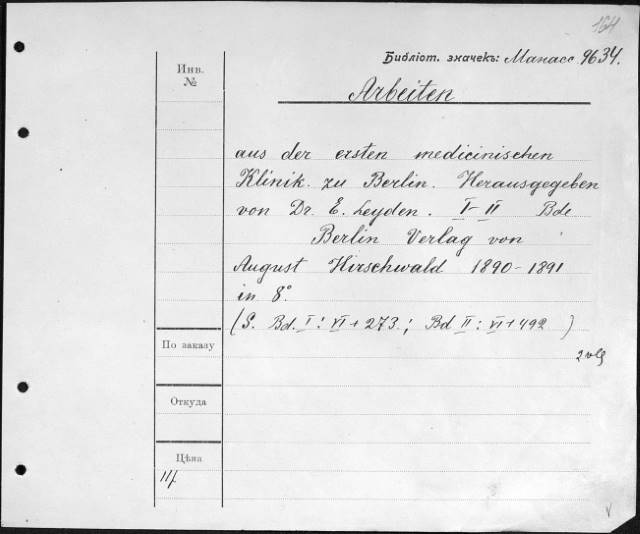 164
Библіот. значекъ: Манасс 9634.
Инв.
№
Arbeiten
aus der ersten medicinischen
Klinik. zu Berlin. Herausgegeben
von Dr. E. Leyden. I-II Bde
Berlin Verlag von
August Hirschwald 1890-1891
in 8°.
(S. Bd. I: VI + 273.; Bd II: VI + 492 )
По заказу
Откуда
Цѣна